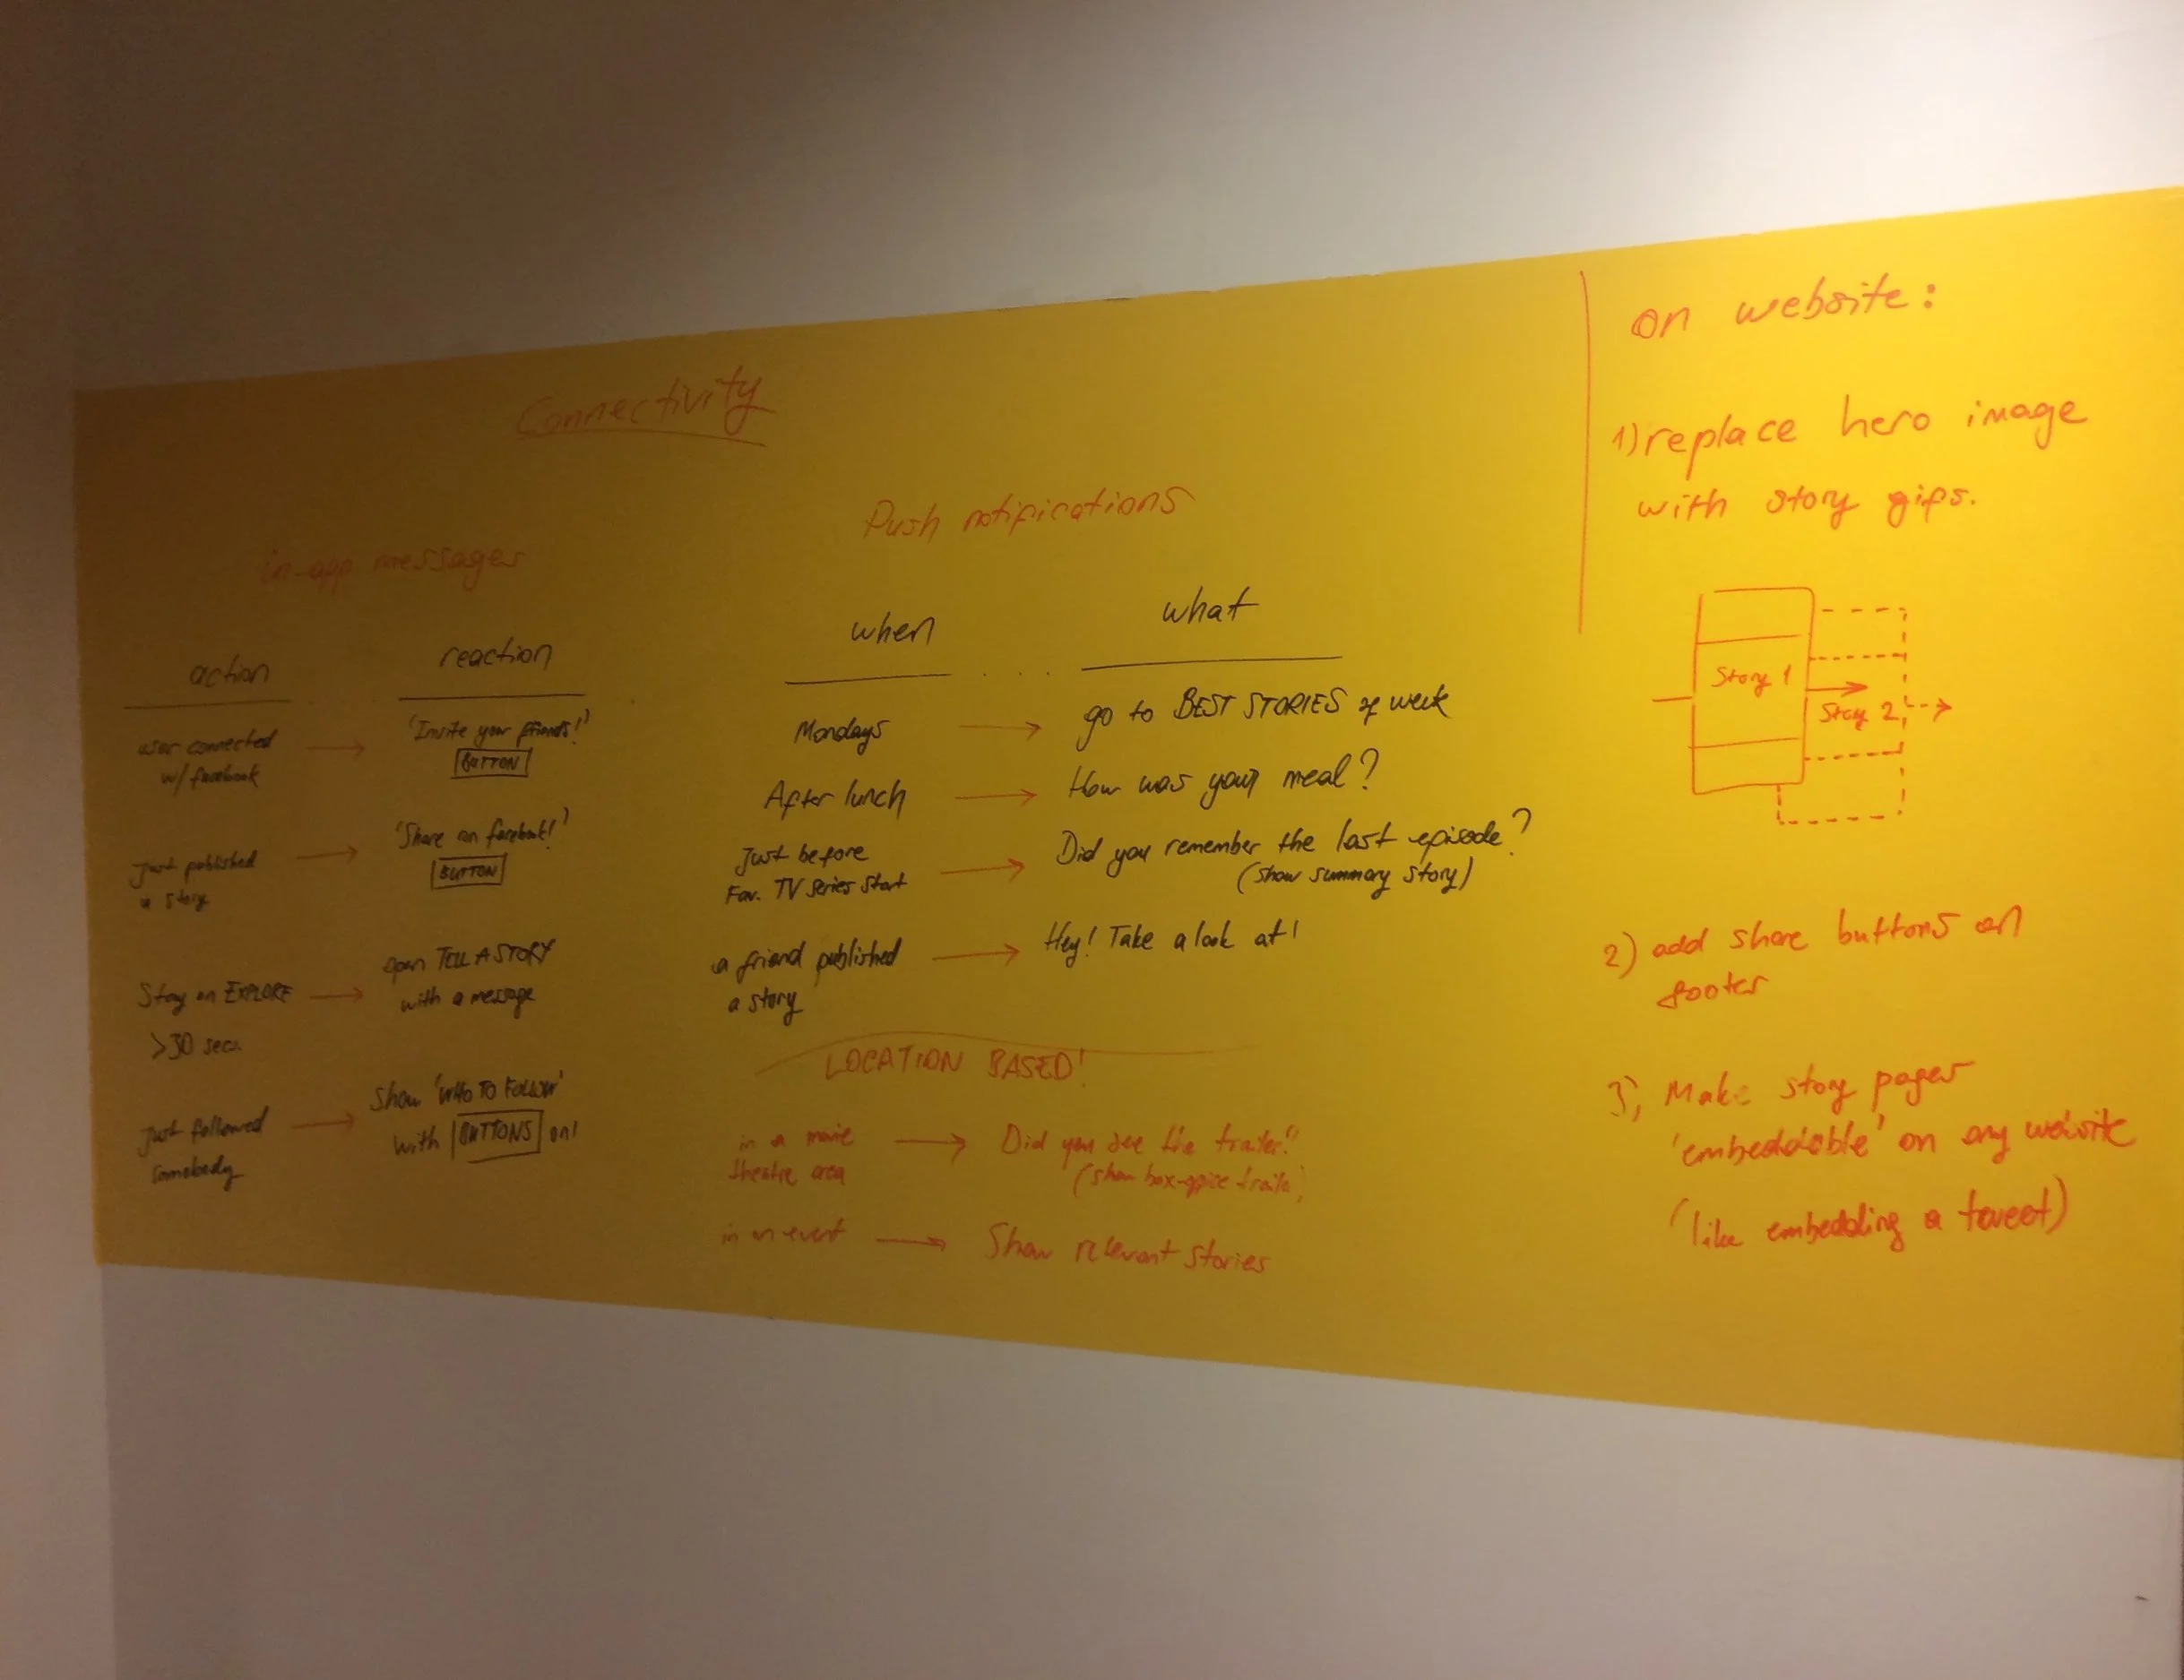 Connectivity
in-app messages
action
reaction
user connected
w/ facebook
'Invite your friends!'
BUTTON
Just published
a story
'Share on facebook!'
BUTTON
Stay on EXPLORE
>30 secs
open TELL A STORY
with a message
Just followed
somebody
Show 'WHO TO FOLLOW'
with BUTTONS on!
Push notifications
when
what
Mondays
go to BEST STORIES of week
After lunch
How was your meal?
Just before
Fav. TV series start
Did you remember the last episode?
(show summary story)
a friend published
a story
Hey! Take a look at!
LOCATION BASED!
in a movie
theatre area
Did you see the trailer?
(show box-office
in an event
Show relevant stories
on website:
1) replace hero image
with story gifs.
Story 1
Story 2
2) add share buttons on
footer
3) Make story pages
'embeddable' on any website
(like embedding a tweet)